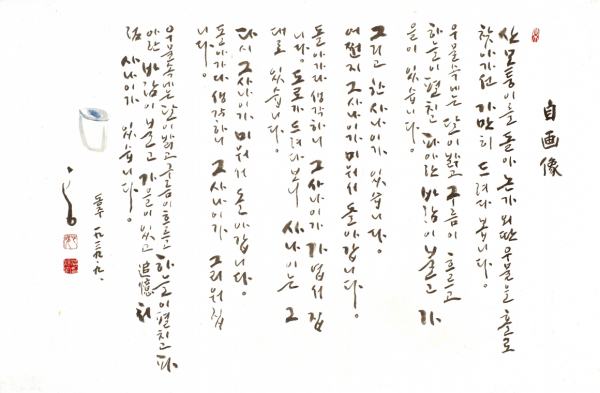 自画像
산모퉁이를 돌아 논가 외딴 우물을 홀로
찾아가선 가만히 드려다 봅니다.
우물속에는 달이 밝고 구름이 흐르고
하늘이 펼치고 파아란 바람이 불고 가
을이 있습니다.
그리고 한 사나이가 있습니다.
어쩐지 그 사나이가 미워서 돌아갑니다.
돌아가다 생각하니 그 사나이가 가엽서집
니다. 도로가 드려다보니 사나이는 그
대로 있습니다.
다시 그 사나이가 미워서 돌아갑니다.
돌아가다 생각하니 그 사나이가 그리워집
니다.
우물속에는 달이 밝고 구름이 흐르고 하늘이 펼치고 파
아란 바람이 불고 가을이 있고 追憶처
럼 사나이가 있습니다.
동주 一九三九.九.